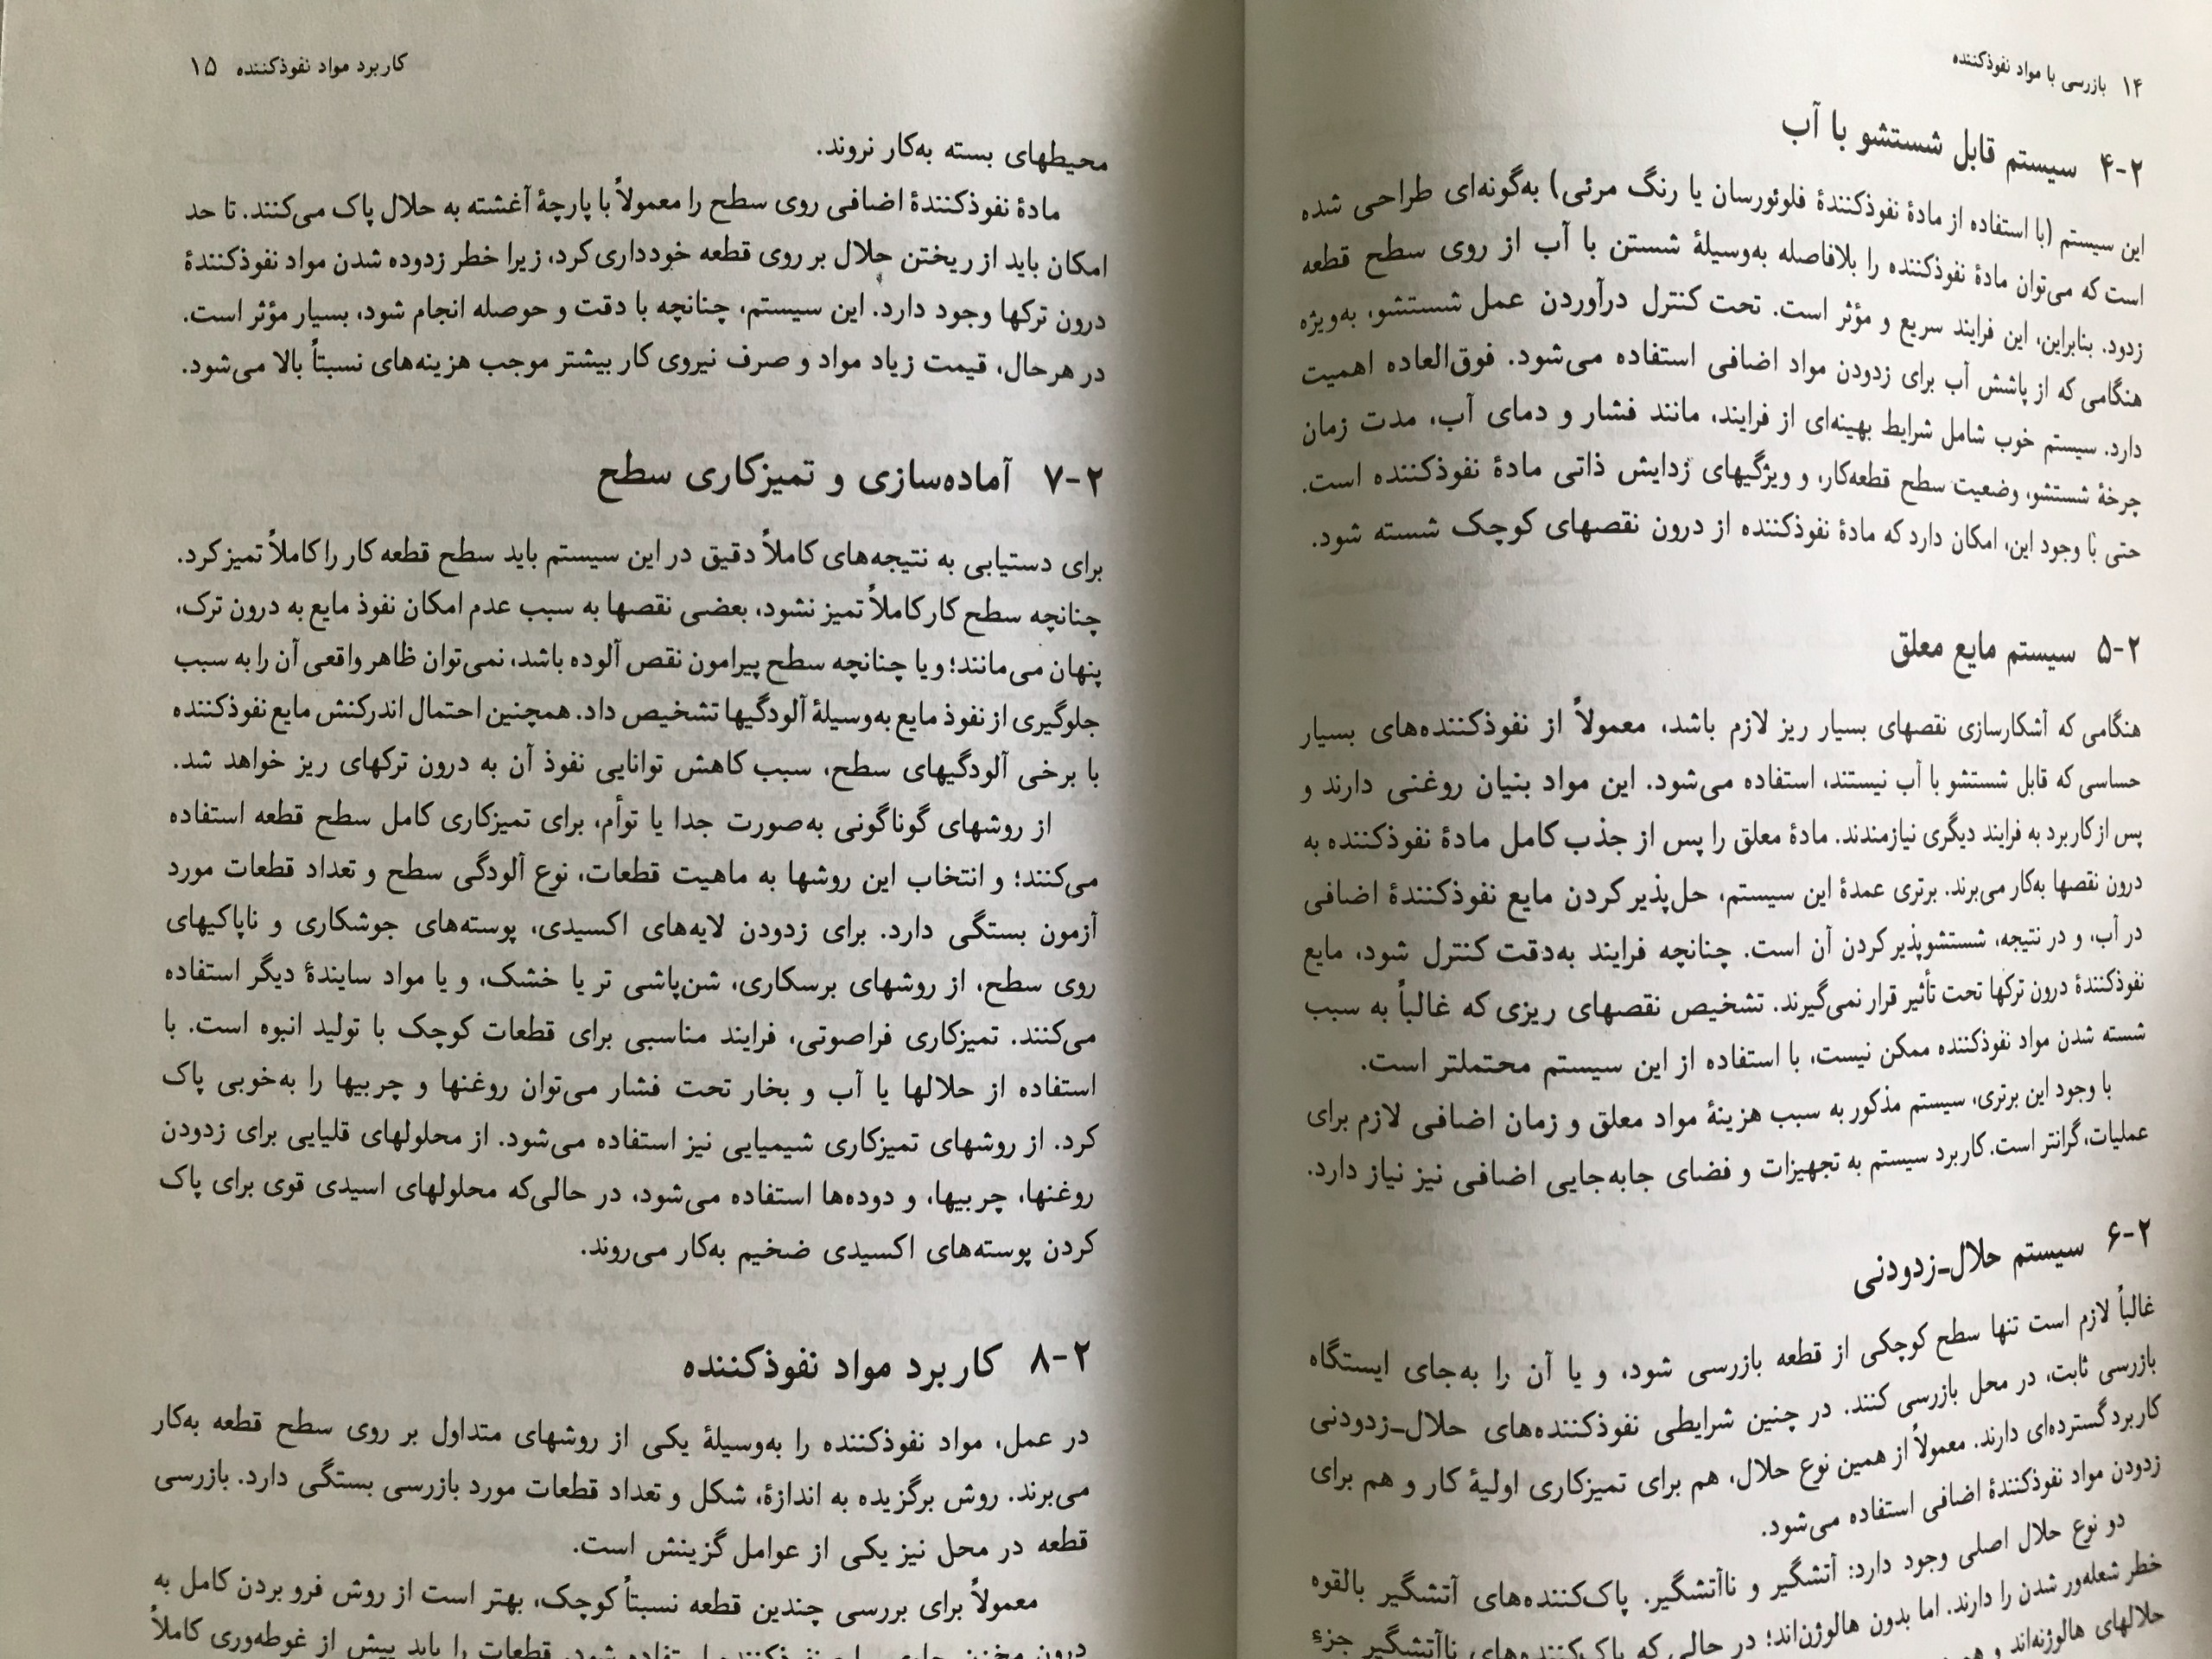 ۱۴ بازرسی با مواد نفوذکننده
۲-۴ سیستم قابل شستشو با آب
این سیستم (با استفاده از مادهٔ نفوذکنندهٔ فلوئورسان یا رنگ مرئی) به‌گونه‌ای طراحی شده
است که می‌توان مادهٔ نفوذکننده را بلافاصله به‌وسیلهٔ شستن با آب از روی سطح قطعه
زدود. بنابراین، این فرایند سریع و مؤثر است. تحت کنترل درآوردن عمل شستشو، به‌ویژه
هنگامی که از پاشش آب برای زدودن مواد اضافی استفاده می‌شود. فوق‌العاده اهمیت
دارد. سیستم خوب شامل شرایط بهینه‌ای از فرایند، مانند فشار و دمای آب، مدت زمان
چرخهٔ شستشو، وضعیت سطح قطعه‌کار، و ویژگیهای زدایش ذاتی مادهٔ نفوذکننده است.
حتی با وجود این، امکان دارد که مادهٔ نفوذکننده از درون نقصهای کوچک شسته شود.
۲-۵ سیستم مایع معلق
هنگامی که آشکارسازی نقصهای بسیار ریز لازم باشد، معمولاً از نفوذکننده‌های بسیار
حساسی که قابل شستشو با آب نیستند، استفاده می‌شود. این مواد بنیان روغنی دارند و
پس از کاربرد به فرایند دیگری نیازمندند. مادهٔ معلق را پس از جذب کامل مادهٔ نفوذکننده به
درون نقصها به‌کار می‌برند. برتری عمدهٔ این سیستم، حل‌پذیر کردن مایع نفوذکنندهٔ اضافی
در آب، و در نتیجه، شستشوپذیر کردن آن است. چنانچه فرایند به‌دقت کنترل شود، مایع
نفوذکنندهٔ درون ترکها تحت تأثیر قرار نمی‌گیرند. تشخیص نقصهای ریزی که غالباً به سبب
شسته شدن مواد نفوذکننده ممکن نیست، با استفاده از این سیستم محتملتر است.
با وجود این برتری، سیستم مذکور به سبب هزینهٔ مواد معلق و زمان اضافی لازم برای
عملیات، گرانتر است. کاربرد سیستم به تجهیزات و فضای جابه‌جایی اضافی نیز نیاز دارد.
۲-۶ سیستم حلال-زدودنی
غالباً لازم است تنها سطح کوچکی از قطعه بازرسی شود، و یا آن را به‌جای ایستگاه
بازرسی ثابت، در محل بازرسی کنند. در چنین شرایطی نفوذکننده‌های حلال-زدودنی
کاربرد گسترده‌ای دارند. معمولاً از همین نوع حلال، هم برای تمیزکاری اولیهٔ کار و هم برای
زدودن مواد نفوذکنندهٔ اضافی استفاده می‌شود.
دو نوع حلال اصلی وجود دارد: آتشگیر و ناآتشگیر. پاک‌کننده‌های آتشگیر بالقوه
خطر شعله‌ور شدن را دارند. اما بدون هالوژن‌اند؛ در حالی که پاک‌کننده‌های ناآتشگیر جزء
حلالهای هالوژنه‌اند و
کاربرد مواد نفوذکننده ۱۵
محیطهای بسته به‌کار نروند.
مادهٔ نفوذکنندهٔ اضافی روی سطح را معمولاً با پارچهٔ آغشته به حلال پاک می‌کنند. تا حد
امکان باید از ریختن حلال بر روی قطعه خودداری کرد، زیرا خطر زدوده شدن مواد نفوذکنندهٔ
درون ترکها وجود دارد. این سیستم، چنانچه با دقت و حوصله انجام شود، بسیار مؤثر است.
در هر حال، قیمت زیاد مواد و صرف نیروی کار بیشتر موجب هزینه‌های نسبتاً بالا می‌شود.
۲-۷ آماده‌سازی و تمیزکاری سطح
برای دستیابی به نتیجه‌های کاملاً دقیق در این سیستم باید سطح قطعه کار را کاملاً تمیز کرد.
چنانچه سطح کار کاملاً تمیز نشود، بعضی نقصها به سبب عدم امکان نفوذ مایع به درون ترک،
پنهان می‌مانند؛ و یا چنانچه سطح پیرامون نقص آلوده باشد، نمی‌توان ظاهر واقعی آن را به سبب
جلوگیری از نفوذ مایع به‌وسیلهٔ آلودگیها تشخیص داد. همچنین احتمال اندرکنش مایع نفوذکننده
با برخی آلودگیهای سطح، سبب کاهش توانایی نفوذ آن به درون ترکهای ریز خواهد شد.
از روشهای گوناگونی به‌صورت جدا یا توأم، برای تمیزکاری کامل سطح قطعه استفاده
می‌کنند؛ و انتخاب این روشها به ماهیت قطعات، نوع آلودگی سطح و تعداد قطعات مورد
آزمون بستگی دارد. برای زدودن لایه‌های اکسیدی، پوسته‌های جوشکاری و ناپاکیهای
روی سطح، از روشهای برسکاری، شن‌پاشی تر یا خشک، و یا مواد سایندهٔ دیگر استفاده
می‌کنند. تمیزکاری فراصوتی، فرایند مناسبی برای قطعات کوچک با تولید انبوه است. با
استفاده از حلالها یا آب و بخار تحت فشار می‌توان روغنها و چربیها را به‌خوبی پاک
کرد. از روشهای تمیزکاری شیمیایی نیز استفاده می‌شود. از محلولهای قلیایی برای زدودن
روغنها، چربیها، و دوده‌ها استفاده می‌شود، در حالی‌که محلولهای اسیدی قوی برای پاک
کردن پوسته‌های اکسیدی ضخیم به‌کار می‌روند.
۲-۸ کاربرد مواد نفوذکننده
در عمل، مواد نفوذکننده را به‌وسیلهٔ یکی از روشهای متداول بر روی سطح قطعه به‌کار
می‌برند. روش برگزیده به اندازهٔ، شکل و تعداد قطعات مورد بازرسی بستگی دارد. بازرسی
قطعه در محل نیز یکی از عوامل گزینش است.
معمولاً برای بررسی چندین قطعه نسبتاً کوچک، بهتر است از روش فرو بردن کامل به
درون مخزن حاوی مایع نفوذکننده استفاده شود. قطعات را باید پیش از غوطه‌وری کاملاً